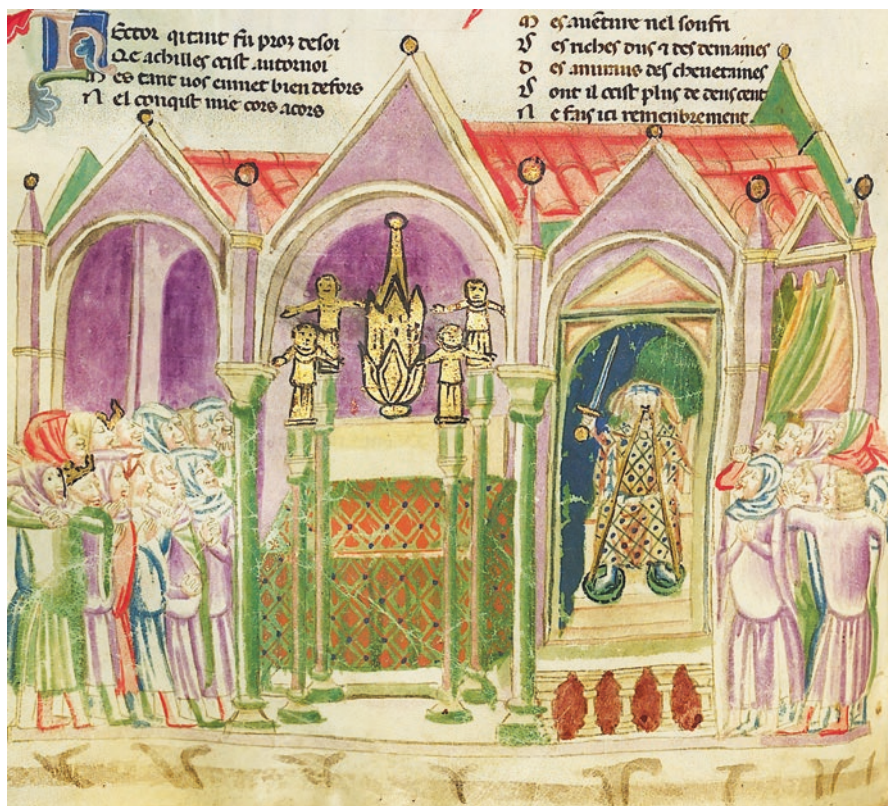 hEctor qi tant fu proz de soi
Qe achilles ocist au tornoi
M es tant uos enmet bien defors
N el conqist mie cors a cors
M es auẽture nel soufri
D es riches dus ⁊ des demaines
D es amiraus des cheuetaines
D ont il ocist plus de deus cent
N e fais ici remenbrement.